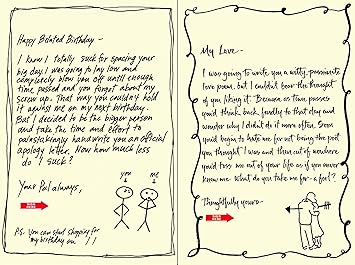 Happy Belated Birthday -
I know I totally suck for spacing your
big day. I was going to lay low and
completely blow you off until enough
time passed and you forgot about my
screw up. That way you couldn't hold
it against me on my next birthday.
But I decided to be the bigger person
and take the time and effort to
painstakingly handwrite you an official
apology letter. Now how much less
do I suck?
Your Pal always,
you
me
P.S. You can start shopping for
my birthday on / /
My Love -
I was going to write you a witty, passionate
love poem. but I couldn't bear the thought
of you liking it. Because, as time passes
you'd think back, fondly to that day and
wonder why I didn't do it more often. Soon
you'd begin to hate me for not being the poet
you thought I was and then out of nowhere
you'd toss me out of your life as if you never
knew me. What do you take me for - a fool?
Thoughtfully yours -